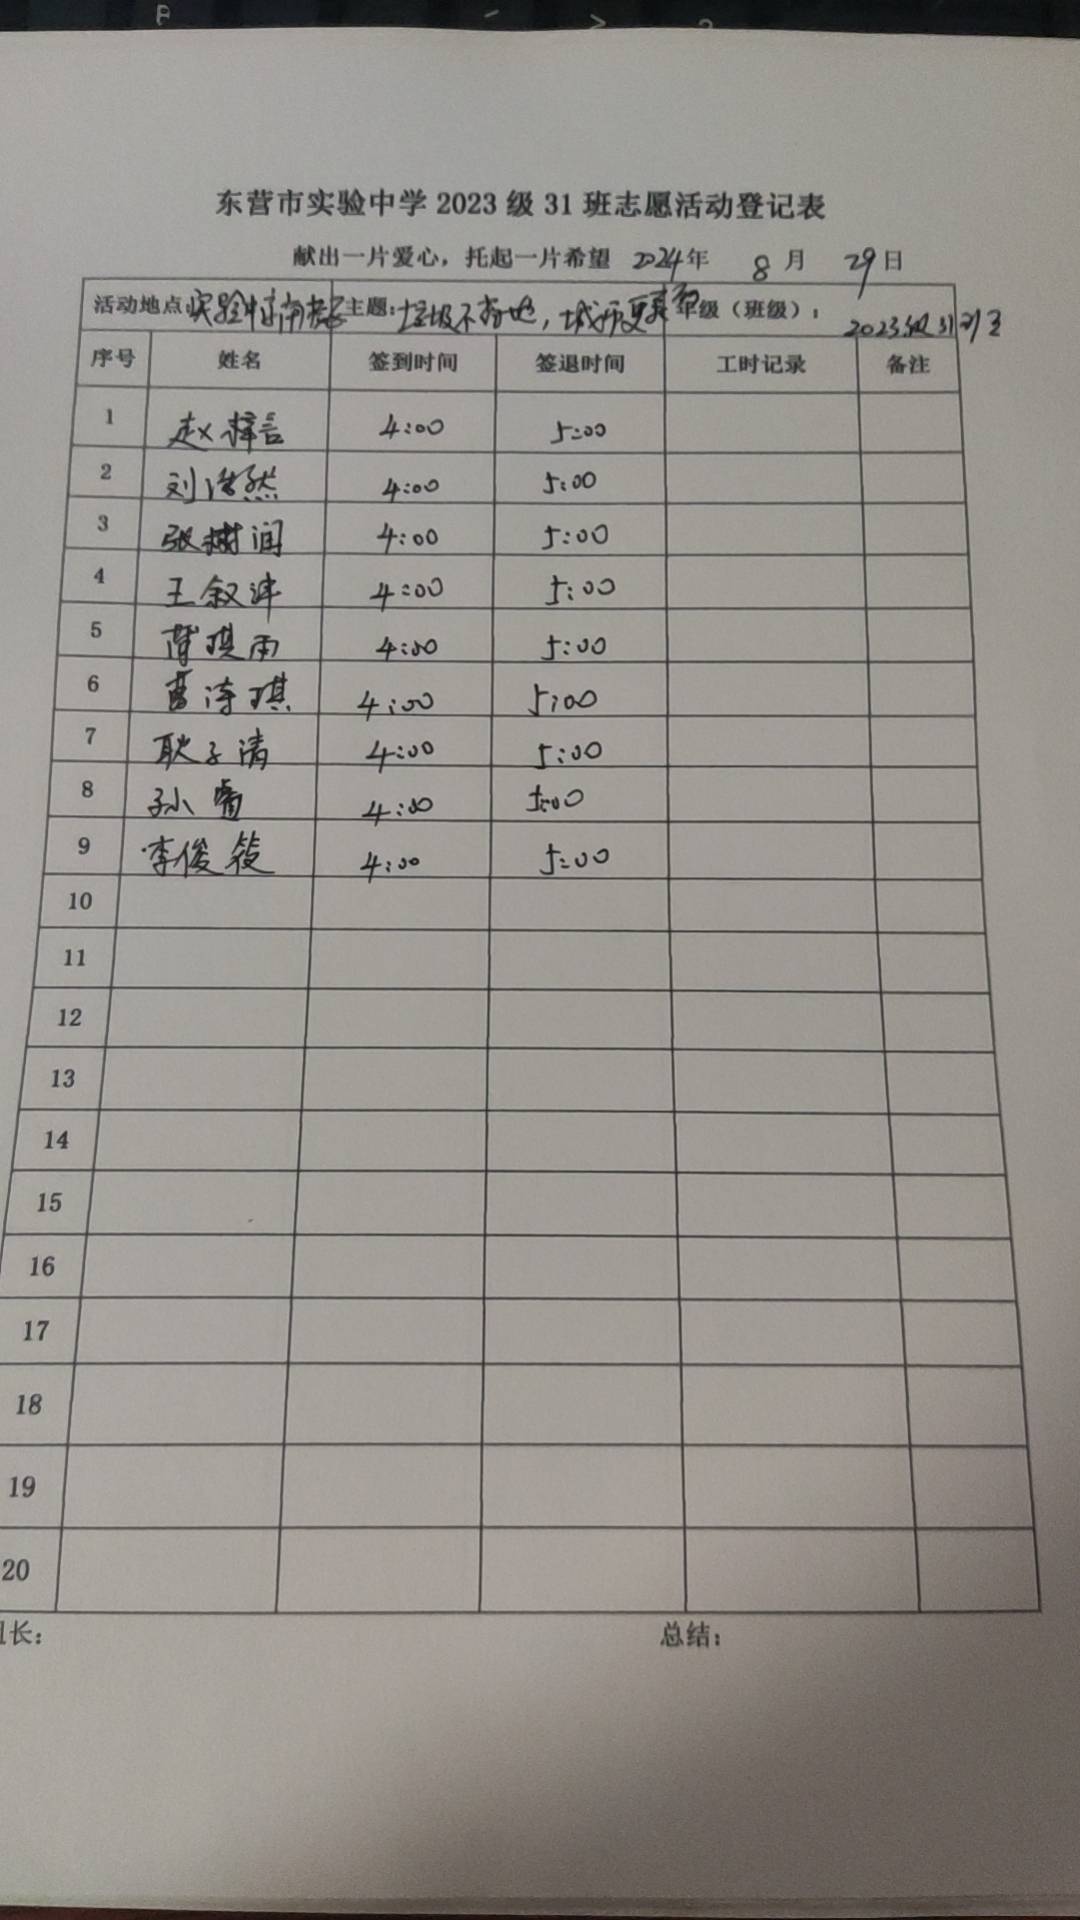 东营市实验中学 2023 级 31 班志愿活动登记表
献出一片爱心，托起一片希望 2024年 8月 29日
活动地点：实验中学南 主题：垃圾不落地，城市更美 年级（班级）：2023级31班
序号 姓名 签到时间 签退时间 工时记录 备注
1 赵梓言 4:00 5:00
2 刘浩然 4:00 5:00
3 张树润 4:00 5:00
4 王叙 4:00 5:00
5 琪雨 4:00 5:00
6 曹 琪 4:00 5:00
7 耿子清 4:00 5:00
8 孙 4:00 5:00
9 李俊筱 4:00 5:00
10
11
12
13
14
15
16
17
18
19
20
长： 总结：